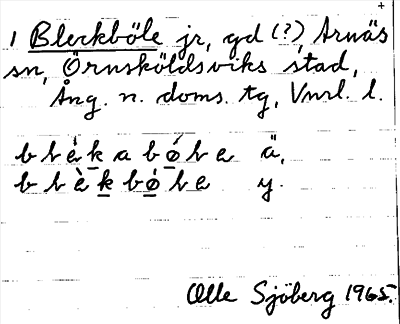 1 Bleckböle jr, gd (?), Arnäs
sn, Örnsköldsviks stad,
Ång. n. doms. tg, Vnrl. l.
blèkabóle ä,
blèkbóle y.
Olle Sjöberg 1965.